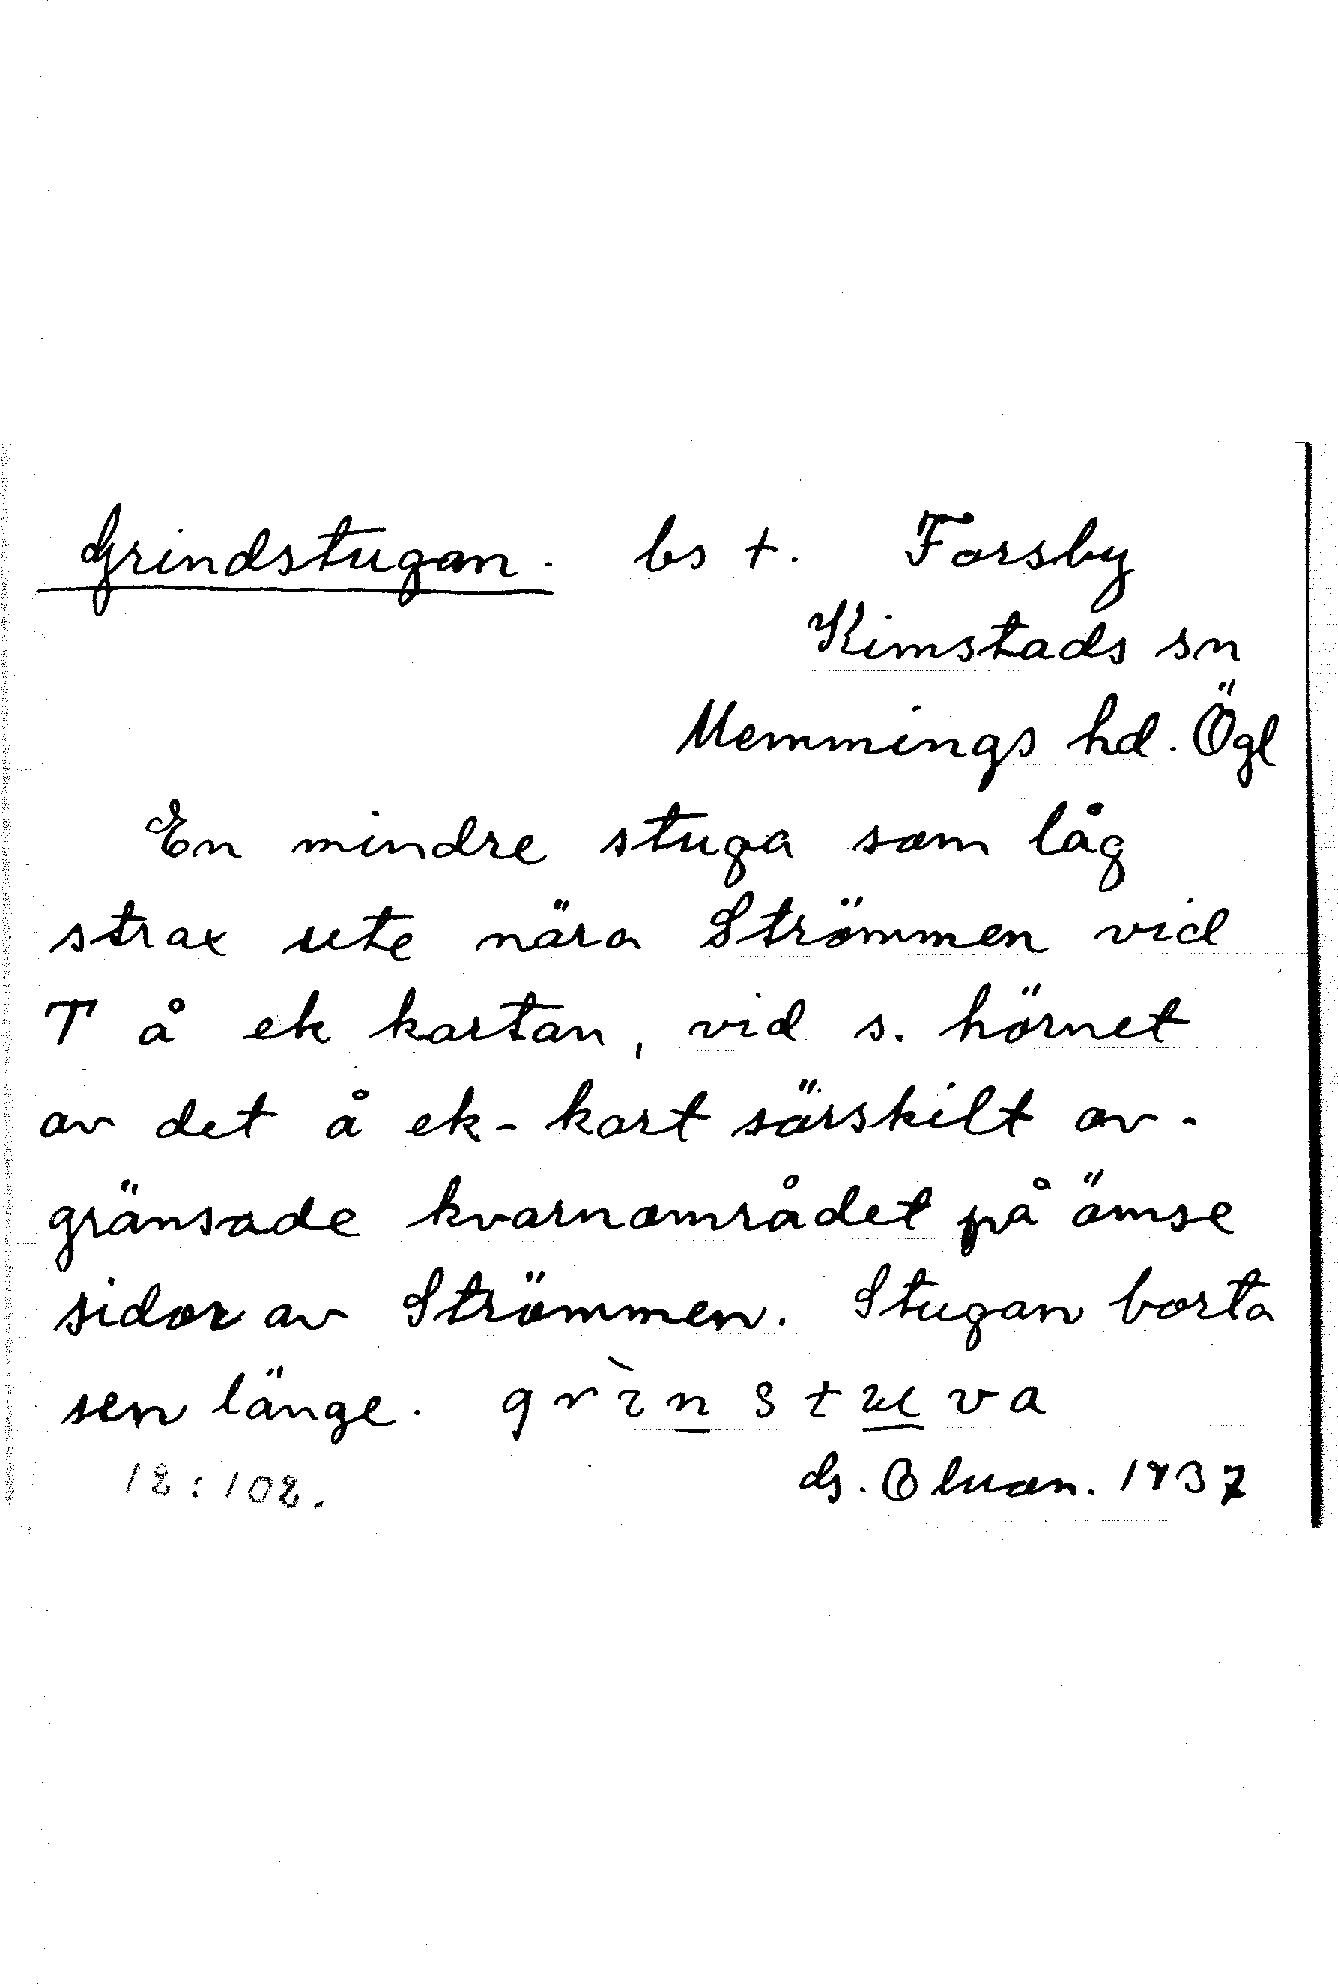 Grindstugan. bs †. Forsby
Kimstads sn
Memmings hd. Ögl
En mindre stuga som låg
strax ute nära Strömmen vid
T å ek kartan, vid s. hörnet
av det å ek-kart särskilt av-
gränsade kvarnområdet på ömse
sidor av Strömmen. Stugan borta
sen länge.
12:102.
ds. 1937